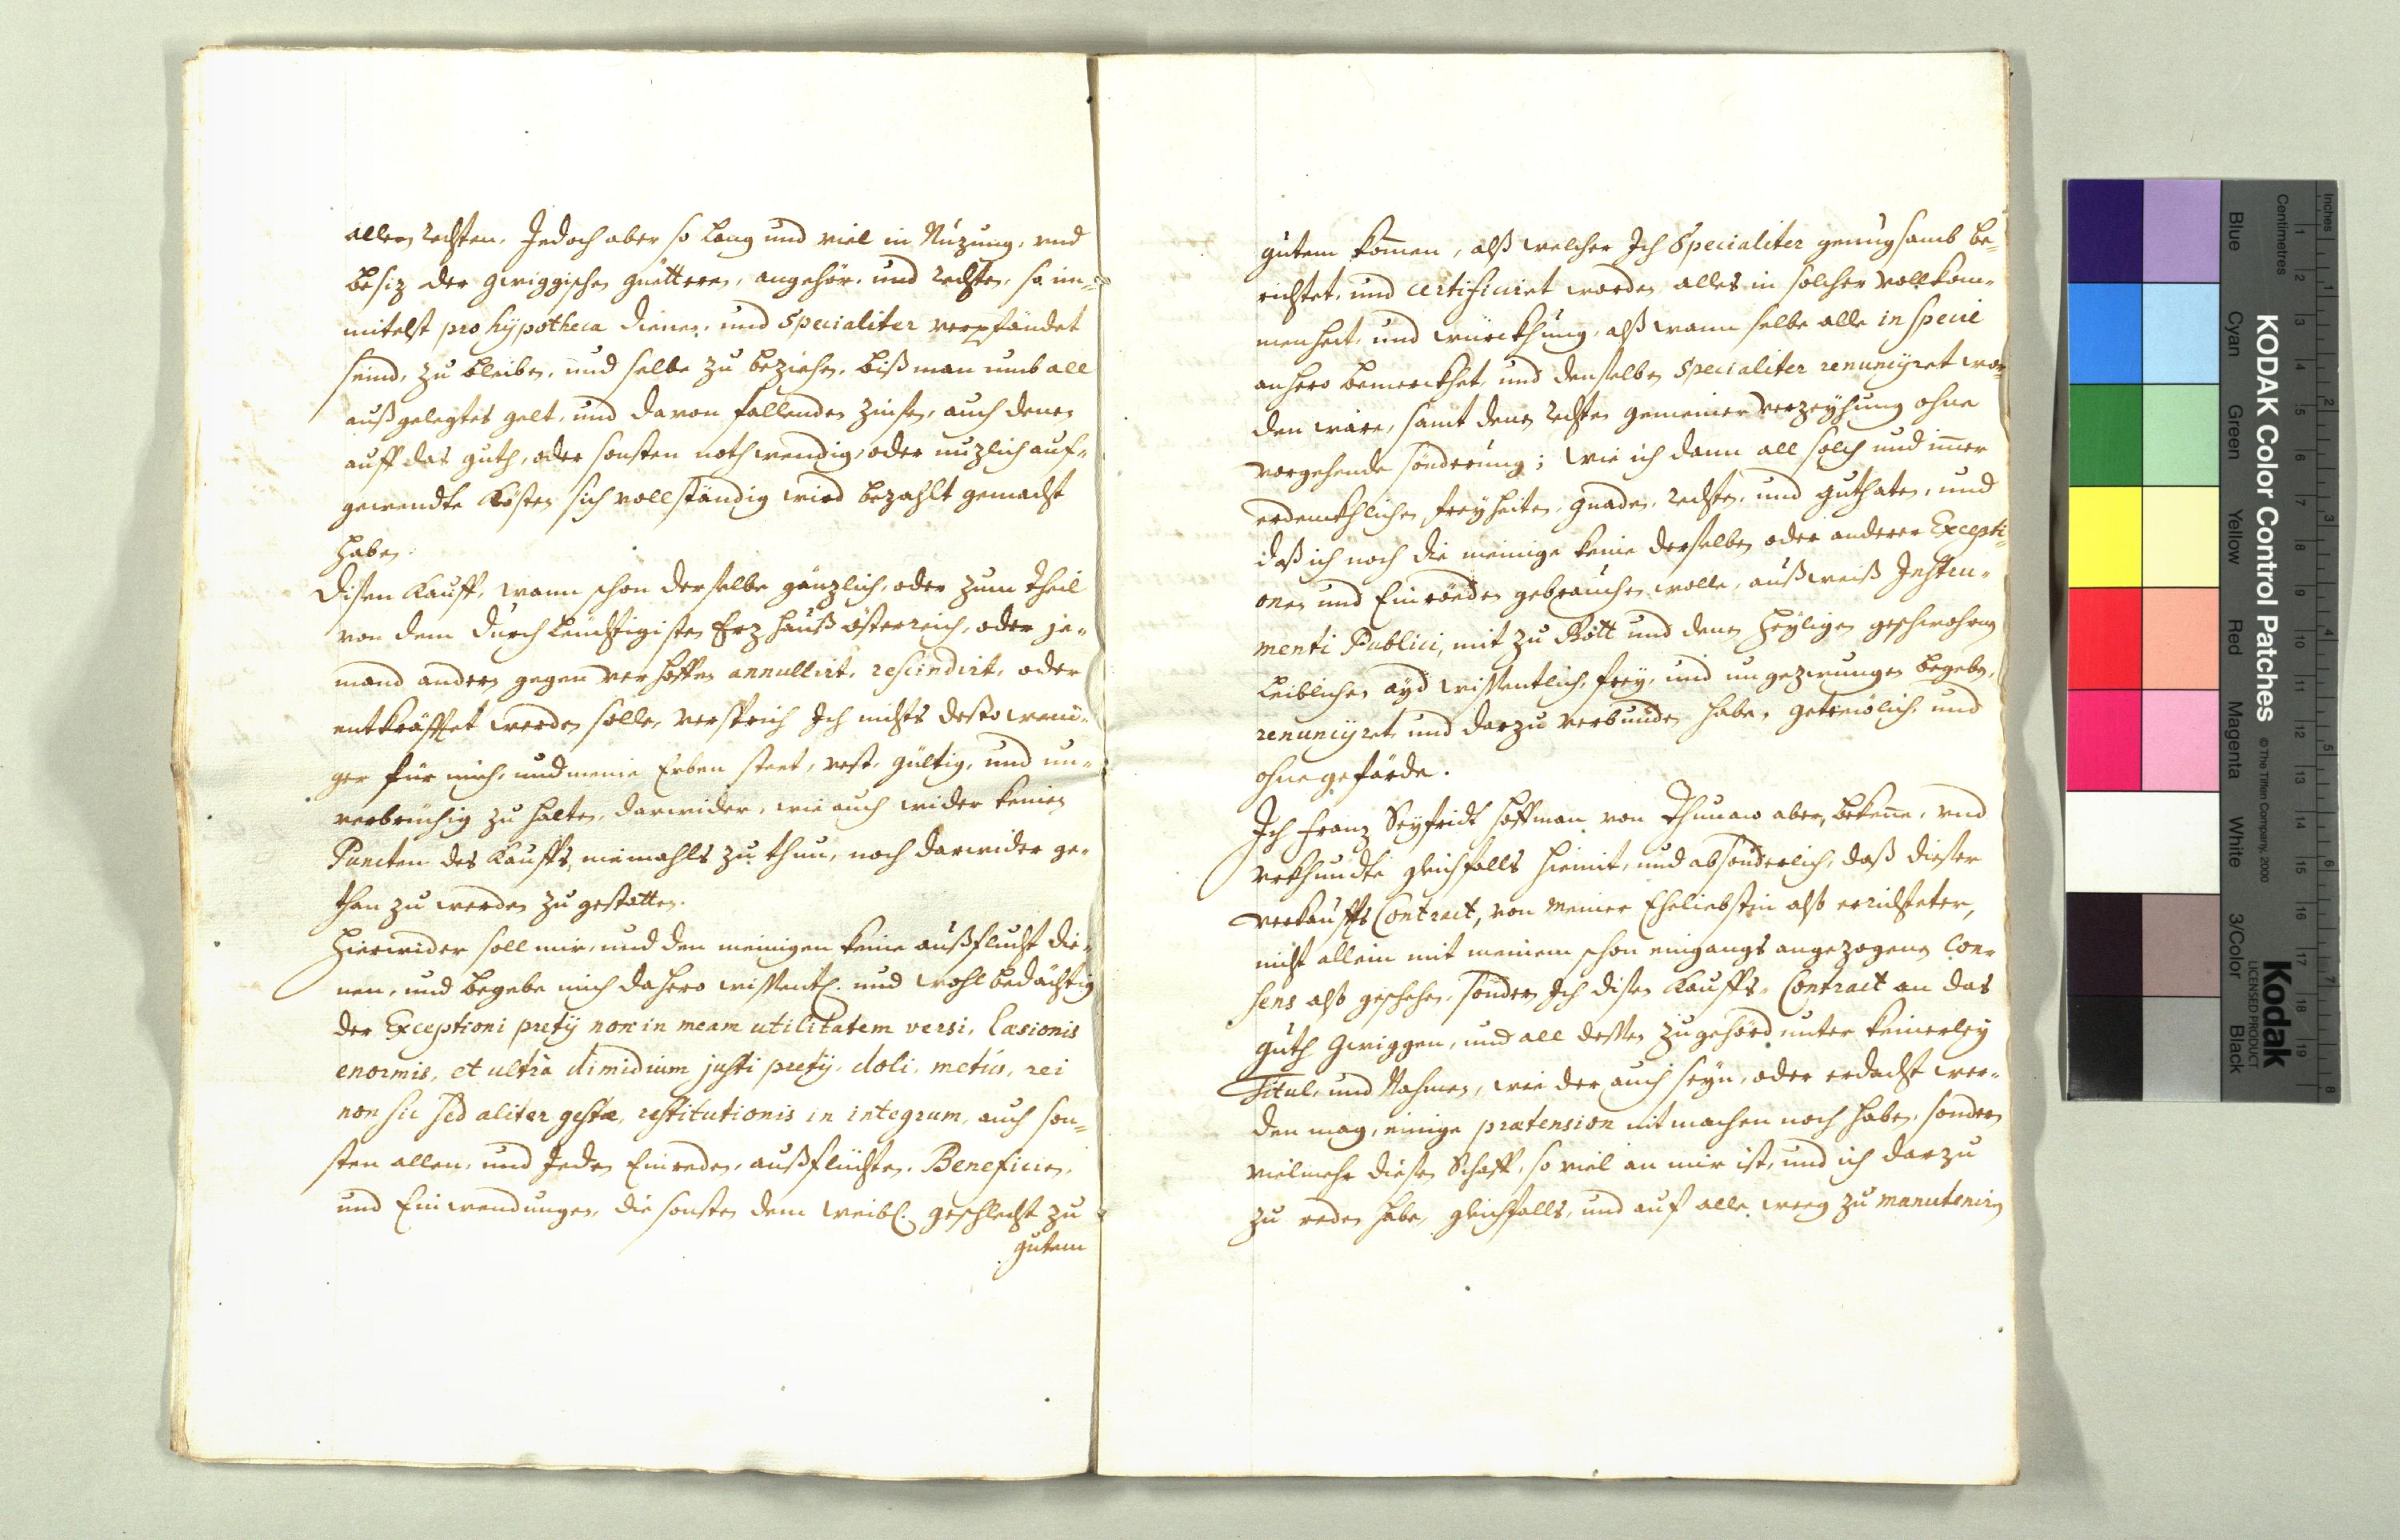 allen rechten. Jedoch aber so lang und viel in Nuzung, und
besiz der Gwiggischen güetteren, angehör, und rechten, so im-
mitelst pro hÿpotheca dienen, und Specialiter verpfändet
seind, zu bleiben, und selbe zu beziehen, biß man umb all
außgelegtes gelt, und davon fallenden zinsen, auch denen
auff das guth, oder sonsten nothwendig, oder nuzlich auf-
gewendte Kösten sich vollständig wird bezahlt gemacht
haben.
Disen Kauff, wann schon derselbe gänzlich, oder zum theil
von dem Durchleüchtigisten Erzhauß österreich, oder je-
mand anders gegen verhoffen annullirt, rescindirt, oder
entkräfftet werden solle, versprich Ich nichts desto weni-
ger für mich, und meine Erben steet, vest, gültig, und un-
verbrüchig zu halten, darwider, wie auch wider keinen
Puncten des Kauffs, niemahls zu thun, noch darwider ge-
than zu werden zu gestatten.
Hierwider soll mir, und den meinigen keine außflucht die-
nen, und begebe mich dahero wissentl. und wohlbedächtig
der Exceptioni pretÿ non in meam utilitatem versi, læsionis
enormis, et ultrà dimidium justi pretÿ, doli, metûs, rei
non sic sed aliter gestæ, restitutionis in integrum, auch son-
sten allen, und Jeden Einreden, außflüchten, Beneficien,
und Einwendungen, die sonsten dem weibl. geschlecht zu
gutem
gutem komen, alß welcher Ich Specialiter genugsamb be-
richtet, und certificiret worden alles in solcher vollkom-
menheit, und würckhung, alß wann selbe alle in specie
anhero bemerckhet, und denselben Specialiter renuncÿret wor-
den wäre, samt denen rechten gemeiner verzeÿhung ohne
vorgehende sönderung; wie ich dann all solch und imer
erdenckhlichen freÿheiten, gnaden, rechten, und guthaten, und
daß ich noch die meinige keine derselben oder anderer Excepti-
onen und Einröeden gebrauchen wolle, außweiß Instru-
menti Publici, mit zu Gott und denen Heÿligen geschwohrnen
Leiblichen aÿd wissentlich, freÿ, und ungezwungen begeben,
renuncÿret, und darzu verbunden habe, getreülich, und
ohne gefärde.
Ich Franz Seÿfridt Hoffman von Thunaw aber, bekene, und
vrkhundte gleichfalls hiemit, und absönderlich, daß dieser
verkauffs Contract, von meiner Eheliebstin also errichteter,
nicht allein mit meinem schon eingangs angezogenen Con-
sens also geschehen, sonder Ich disen Kauffs-Contract an das
guth Gwiggen, und all dessen zugehörd unter keinerleÿ
Titul, und Nahmen, wie der auch seÿn, oder erdacht wer-
den mag, einige prætension nit machen noch haben, sondern
vielmehr diesen Schaff, so viel an mir ist, und ich darzu
zu reden habe, gleichfalls, und auf alle weeg zu manuteniren
KODAK Color Control Patches
© The Tiffen Company, 2000
Kodak
LICENSED PRODUCT
Blue
Cyan
Green
Yellow
Red
Magenta
White
3/Color
Black
Centimetres
Inches
1
2
3
4
5
6
7
8
9
10
11
12
13
14
15
16
17
18
19
1
2
3
4
5
6
7
8